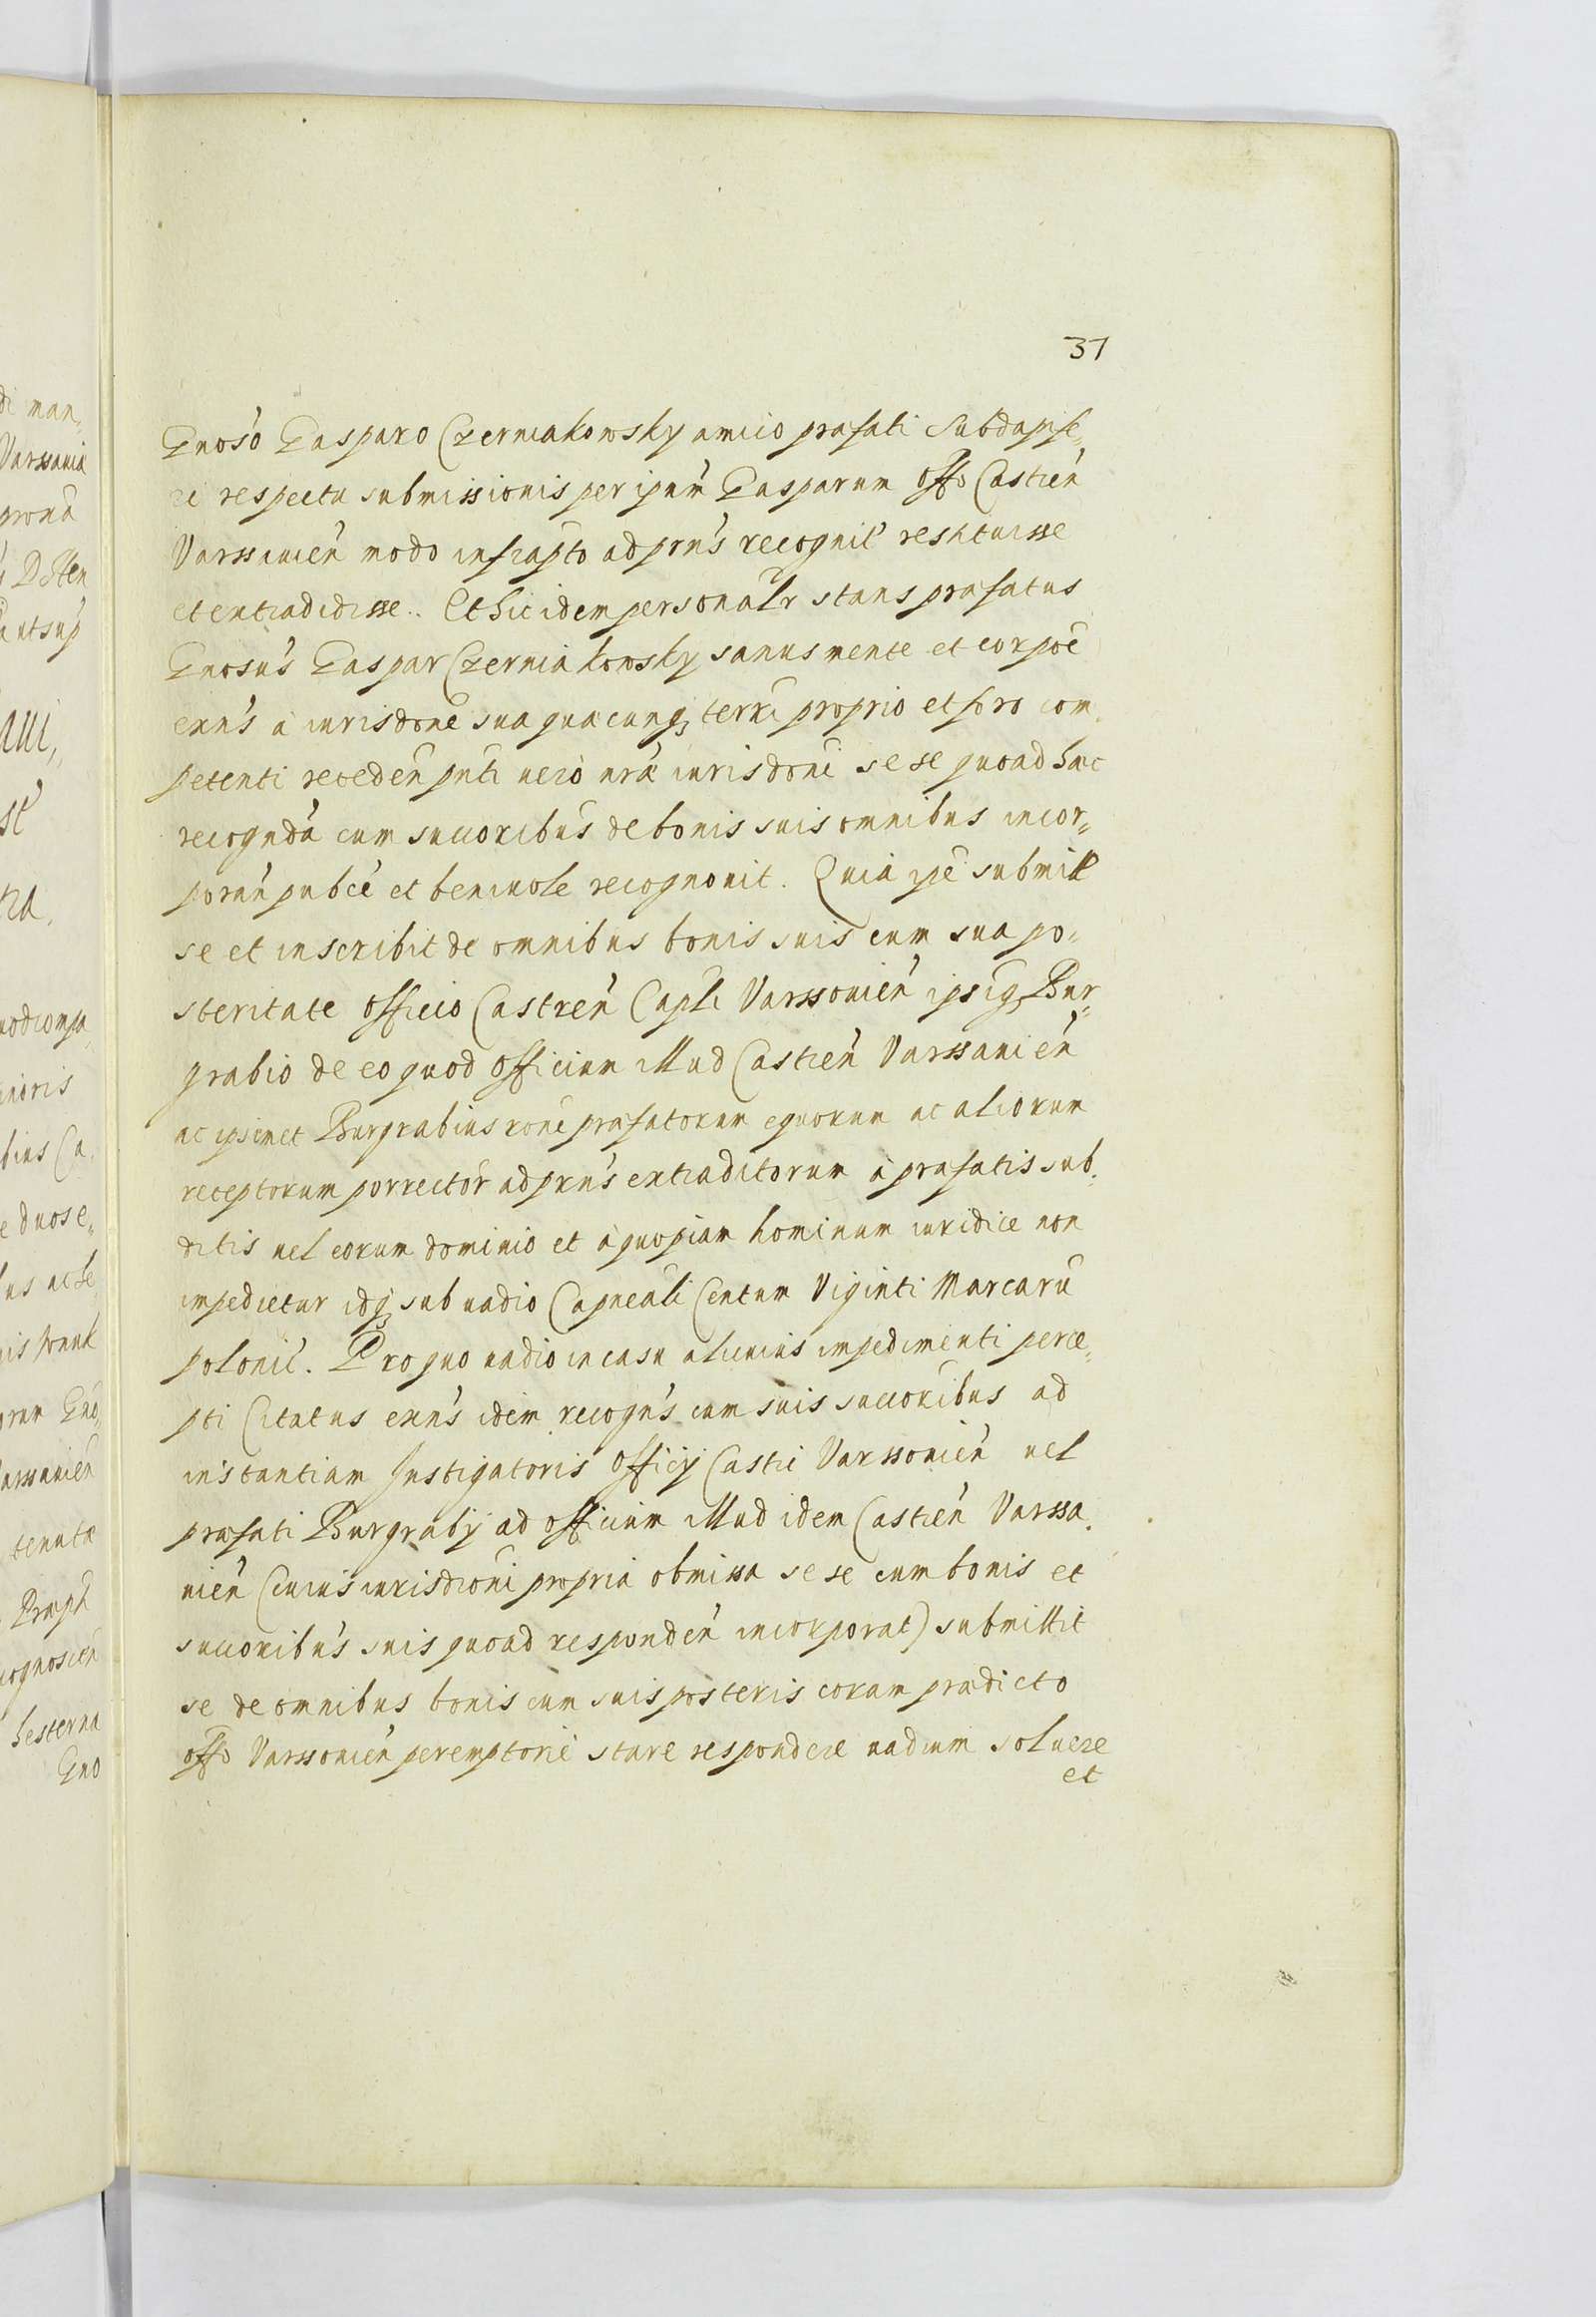 37
di man„
Varssauiæ
Gnoso Gasparo Czerniakowsky amico præfati Subdapife„
ri respectu submissionis per ipum Gasparum Offo Castren
Varssauien modo infrapto ad prns recognit restituisse
et extradidisse. Et hic idem personalr stans præfatus
Gnosus Gaspar Czerniakowsky sanus mente et corpoe
exns a iurisdone sua quacunq terri proprio et foro com„
petenti receden pnti uero nræ iurisdoni se se quoad hac
recognda cum succoribus de bonis suis omnibus incor„
poran pubce et beniuole recognouit. Quia ipe submitt
se et inscribit de omnibus bonis suis cum sua po„
steritate officio Castren Capli Varssouien ipsiq Bur„
grabio de eo quod officium illud Castren Varssauien
ac ipsemet Burgrabius rone præfatorum equorum ac aliorum
receptorum porrector ad prns extraditorum a præfatis sub„
ditis uel eorum dominio et a quopiam hominum iuridice non
impedietur idq sub uadio Capneali Centum Viginti Marcaru
polonil. Pro quo uadio in casu alicuius impedimenti perce„
pti Citatus exns idem recogns cum suis succoribus ad
instantiam Instigatoris Officij Castri Varssouien uel
præfati Burgrabij ad officium illud idem Castren Varssa„
uien (Cuius iurisdioni propria obmissa se se cum bonis et
succoribus suis quoad responden incorporat) submittit
se de omnibus bonis cum suis posteris coram prædicto
offo Varssouien peremptorie stare respondere uadium soluere
et